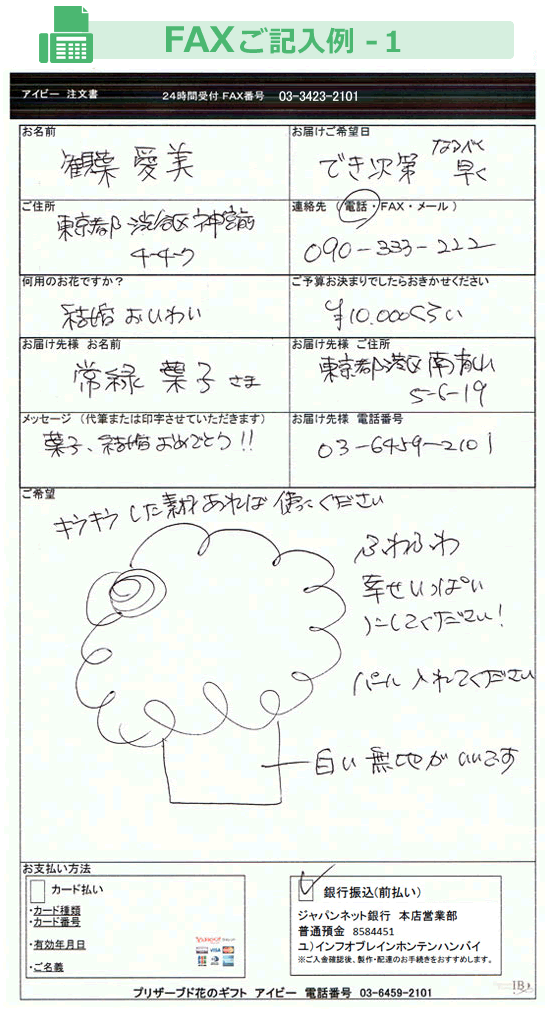 FAXご記入例 - 1
アイビー 注文書 24時間受付 FAX番号 03-3423-2101
お名前
観葉 愛美
お届けご希望日
なるべく
でき次第 早く
ご住所
東京都 渋谷区 神宮前
4-4-7
連絡先 (電話・FAX・メール)
090-333-222
何用のお花ですか?
結婚 おいわい
ご予算お決まりでしたらおきかせください
¥10.000くらい
お届け先様 お名前
常緑 葉子 さま
お届け先様 ご住所
東京都 港区 南青山
5-6-19
メッセージ (代筆または印字させていただきます)
葉子、結婚おめでとう!!
お届け先様 電話番号
03-6459-2101
ご希望
キラキラ した素材あれば 使ってください
ふわふわ
幸せいっぱい
にしてください!
パール 入れてください
白い 無地が いいです
お支払い方法
カード払い
・カード種類
・カード番号
・有効年月日
・ご名義
YAHOO!
VISA
銀行振込(前払い)
ジャパンネット銀行 本店営業部
普通預金 8584451
ユ)インフオブレインホンテンハンバイ
※ご入金確認後、製作・配達のお手続きをおすすめします。
プリザーブド花のギフト アイビー 電話番号 03-6459-2101
IB